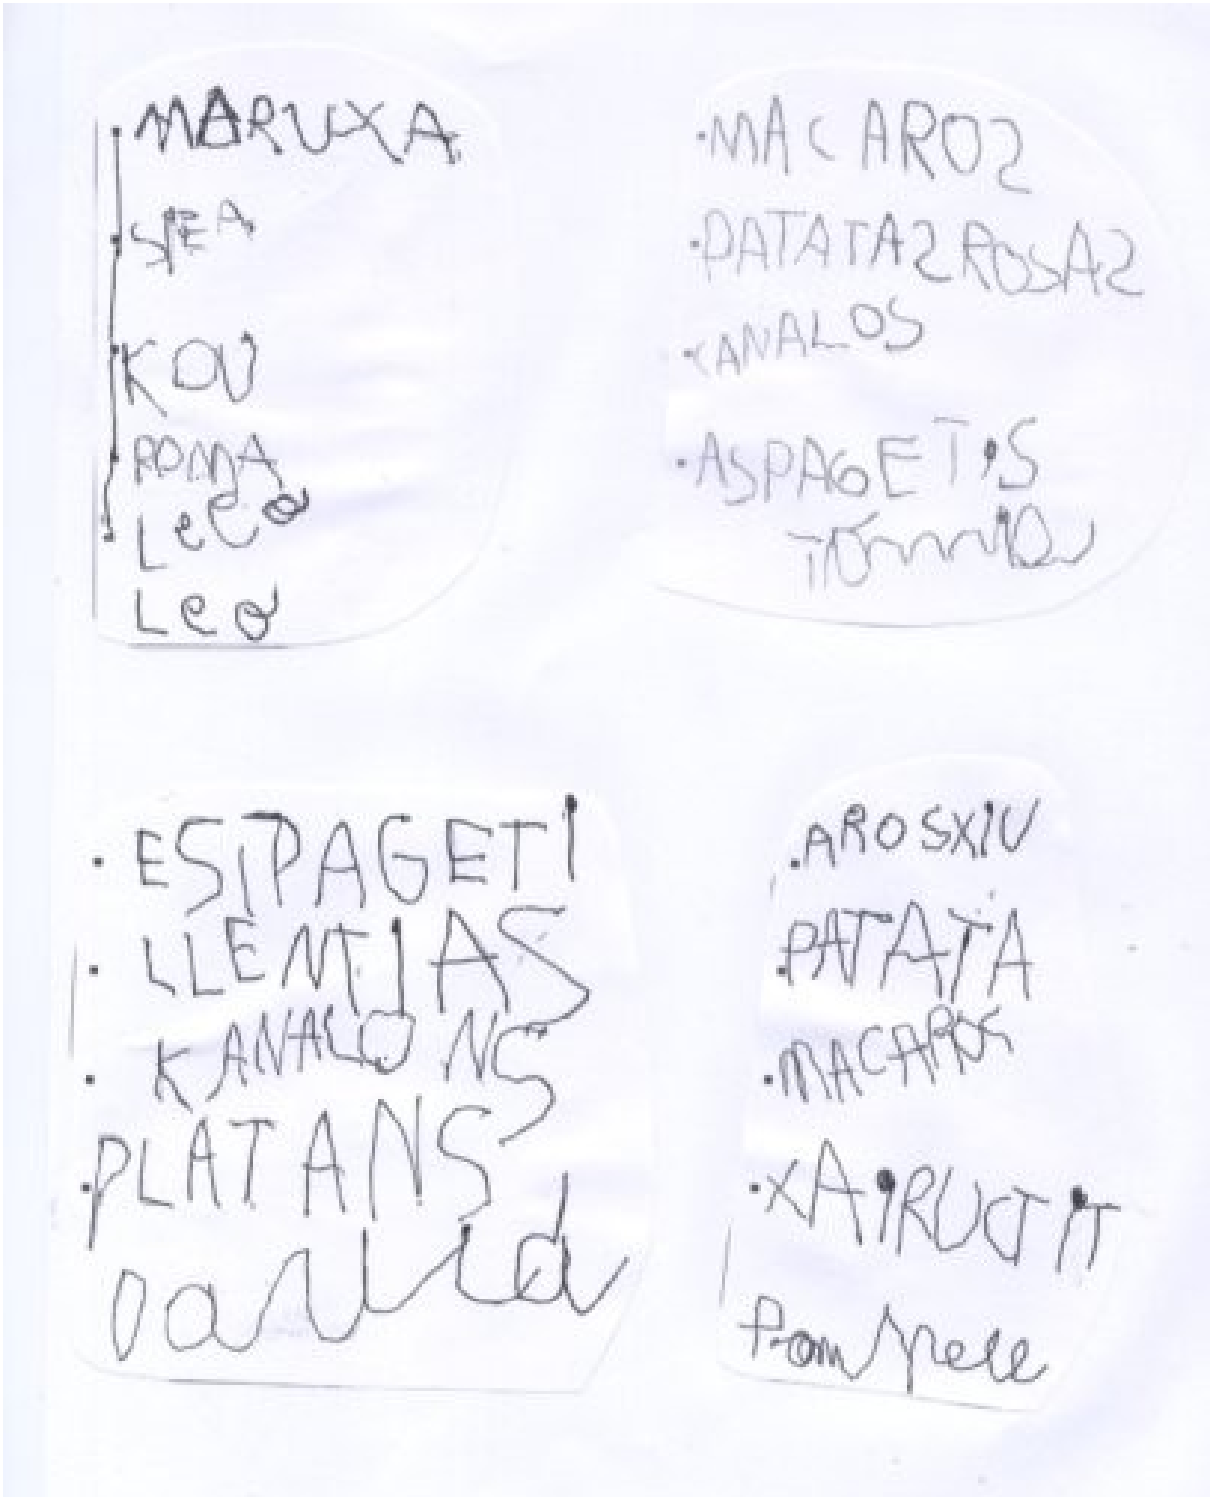 • MARUXA
• SPEA
• KOU
• ROMA
• Leca
Leo
• MACAROS
• PATATAS ROSAS
• CANALOS
• ASPAGETIS
• ESPAGETI
• LLENTIAS
• KANALONS
• PLATANS
David
• AROSXIU
• PATATA
• MACAROS
• XAIRUCTIT